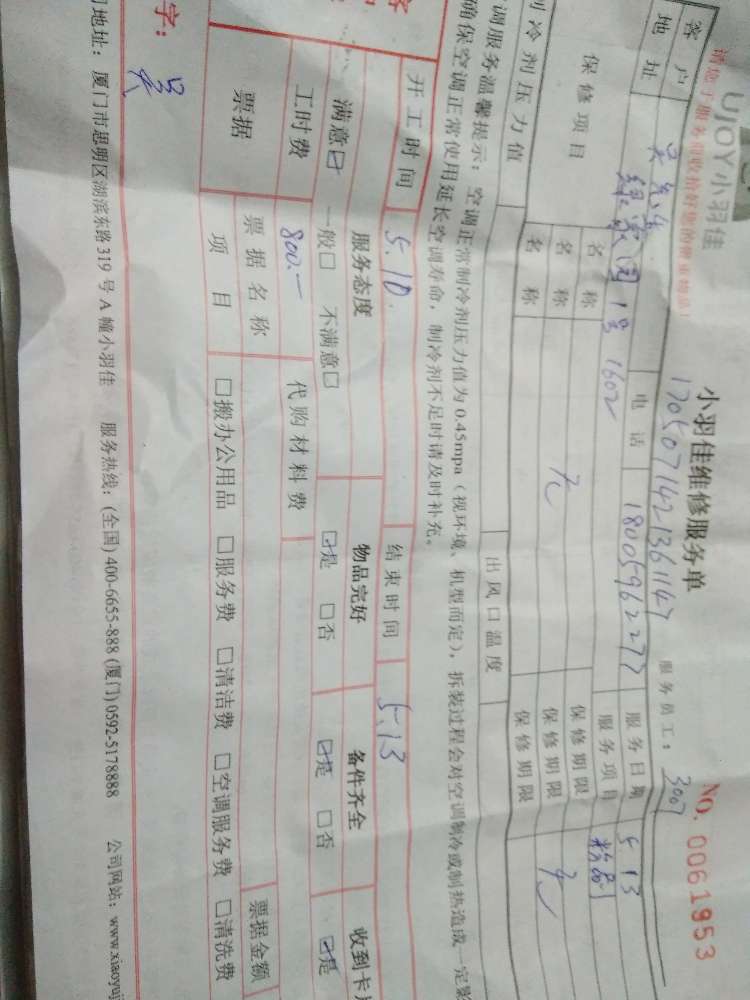 UJOY小羽佳
小羽佳维修服务单
NO. 0061953
170507142136114 服务员工: 3007
客户 电话 18005962277 服务日期 5.13
地址 1号1602 服务项目 粉刷
保修项目 名称 保修期限
名称 无 保修期限 无
名称 保修期限
制冷剂压力值 出风口温度
调服务温馨提示: 空调正常制冷剂压力值为0.45mpa(视环境、机型而定), 拆装过程会对空调制冷或制热造成一定影
确保空调正常使用延长空调寿命, 制冷剂不足时请及时补充。
开工时间 5.10. 结束时间 5.13
服务态度 物品完好 备件齐全 收到卡
满意☑ 一般□ 不满意□ ☑是 □否 ☑是 □否 ☑是
工时费 800.- 代购材料费
票据 票据名称 票据金额
项目 □搬办公用品 □服务费 □清洁费 □空调服务费 □清洗费
字: 吴
司地址: 厦门市思明区湖滨东路319号A幢小羽佳 服务热线: (全国) 400-6655-888 (厦门) 0592-5178888 公司网站: www.xiaoyuj